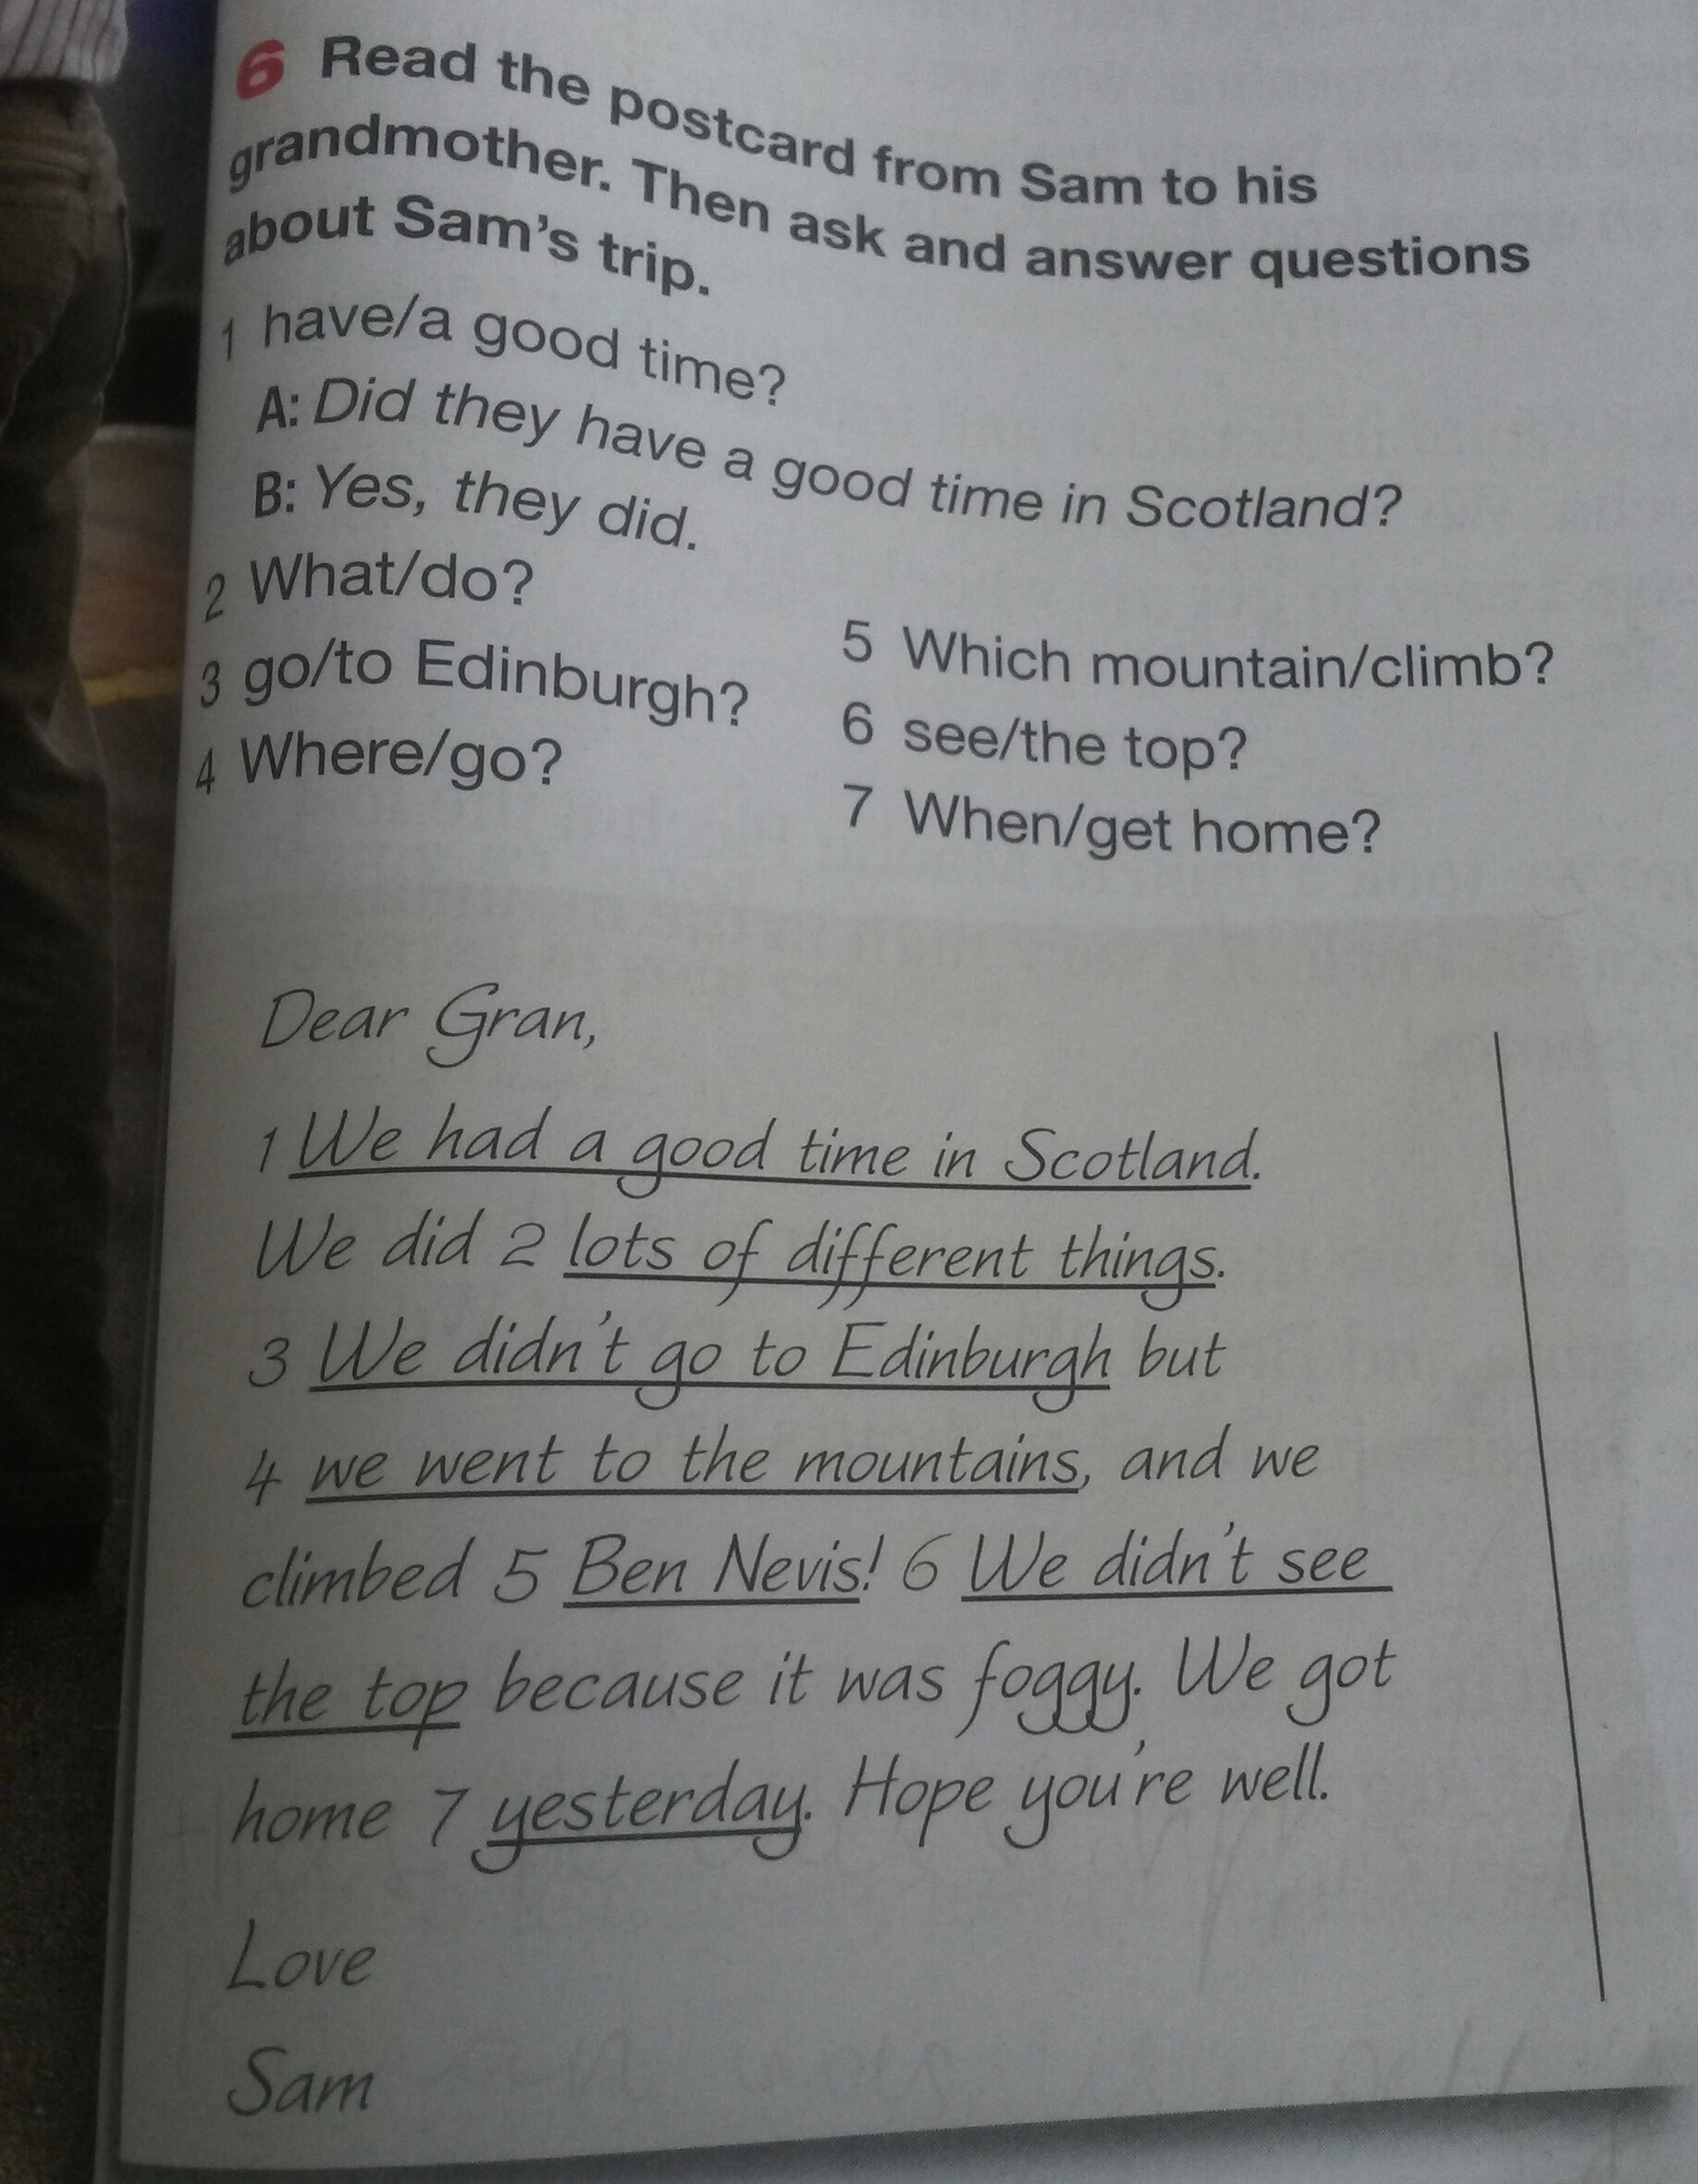 6 Read the postcard from Sam to his
grandmother. Then ask and answer questions
about Sam's trip.
1 have/a good time?
A: Did they have a good time in Scotland?
B: Yes, they did.
2 What/do?
3 go/to Edinburgh?
4 Where/go?
5 Which mountain/climb?
6 see/the top?
7 When/get home?
Dear Gran,
1 We had a good time in Scotland.
We did 2 lots of different things.
3 We didn't go to Edinburgh but
4 we went to the mountains, and we
climbed 5 Ben Nevis! 6 We didn't see
the top because it was foggy. We got
home 7 yesterday. Hope you're well.
Love
Sam